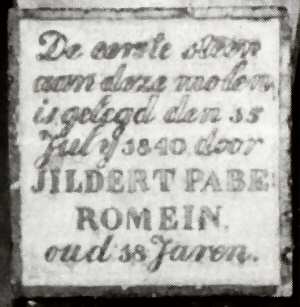 De eerste steen
aan deze molen
is gelegd den 15
July 1840 door
JILDERT PABE
ROMEIN,
oud 18 Jaren.